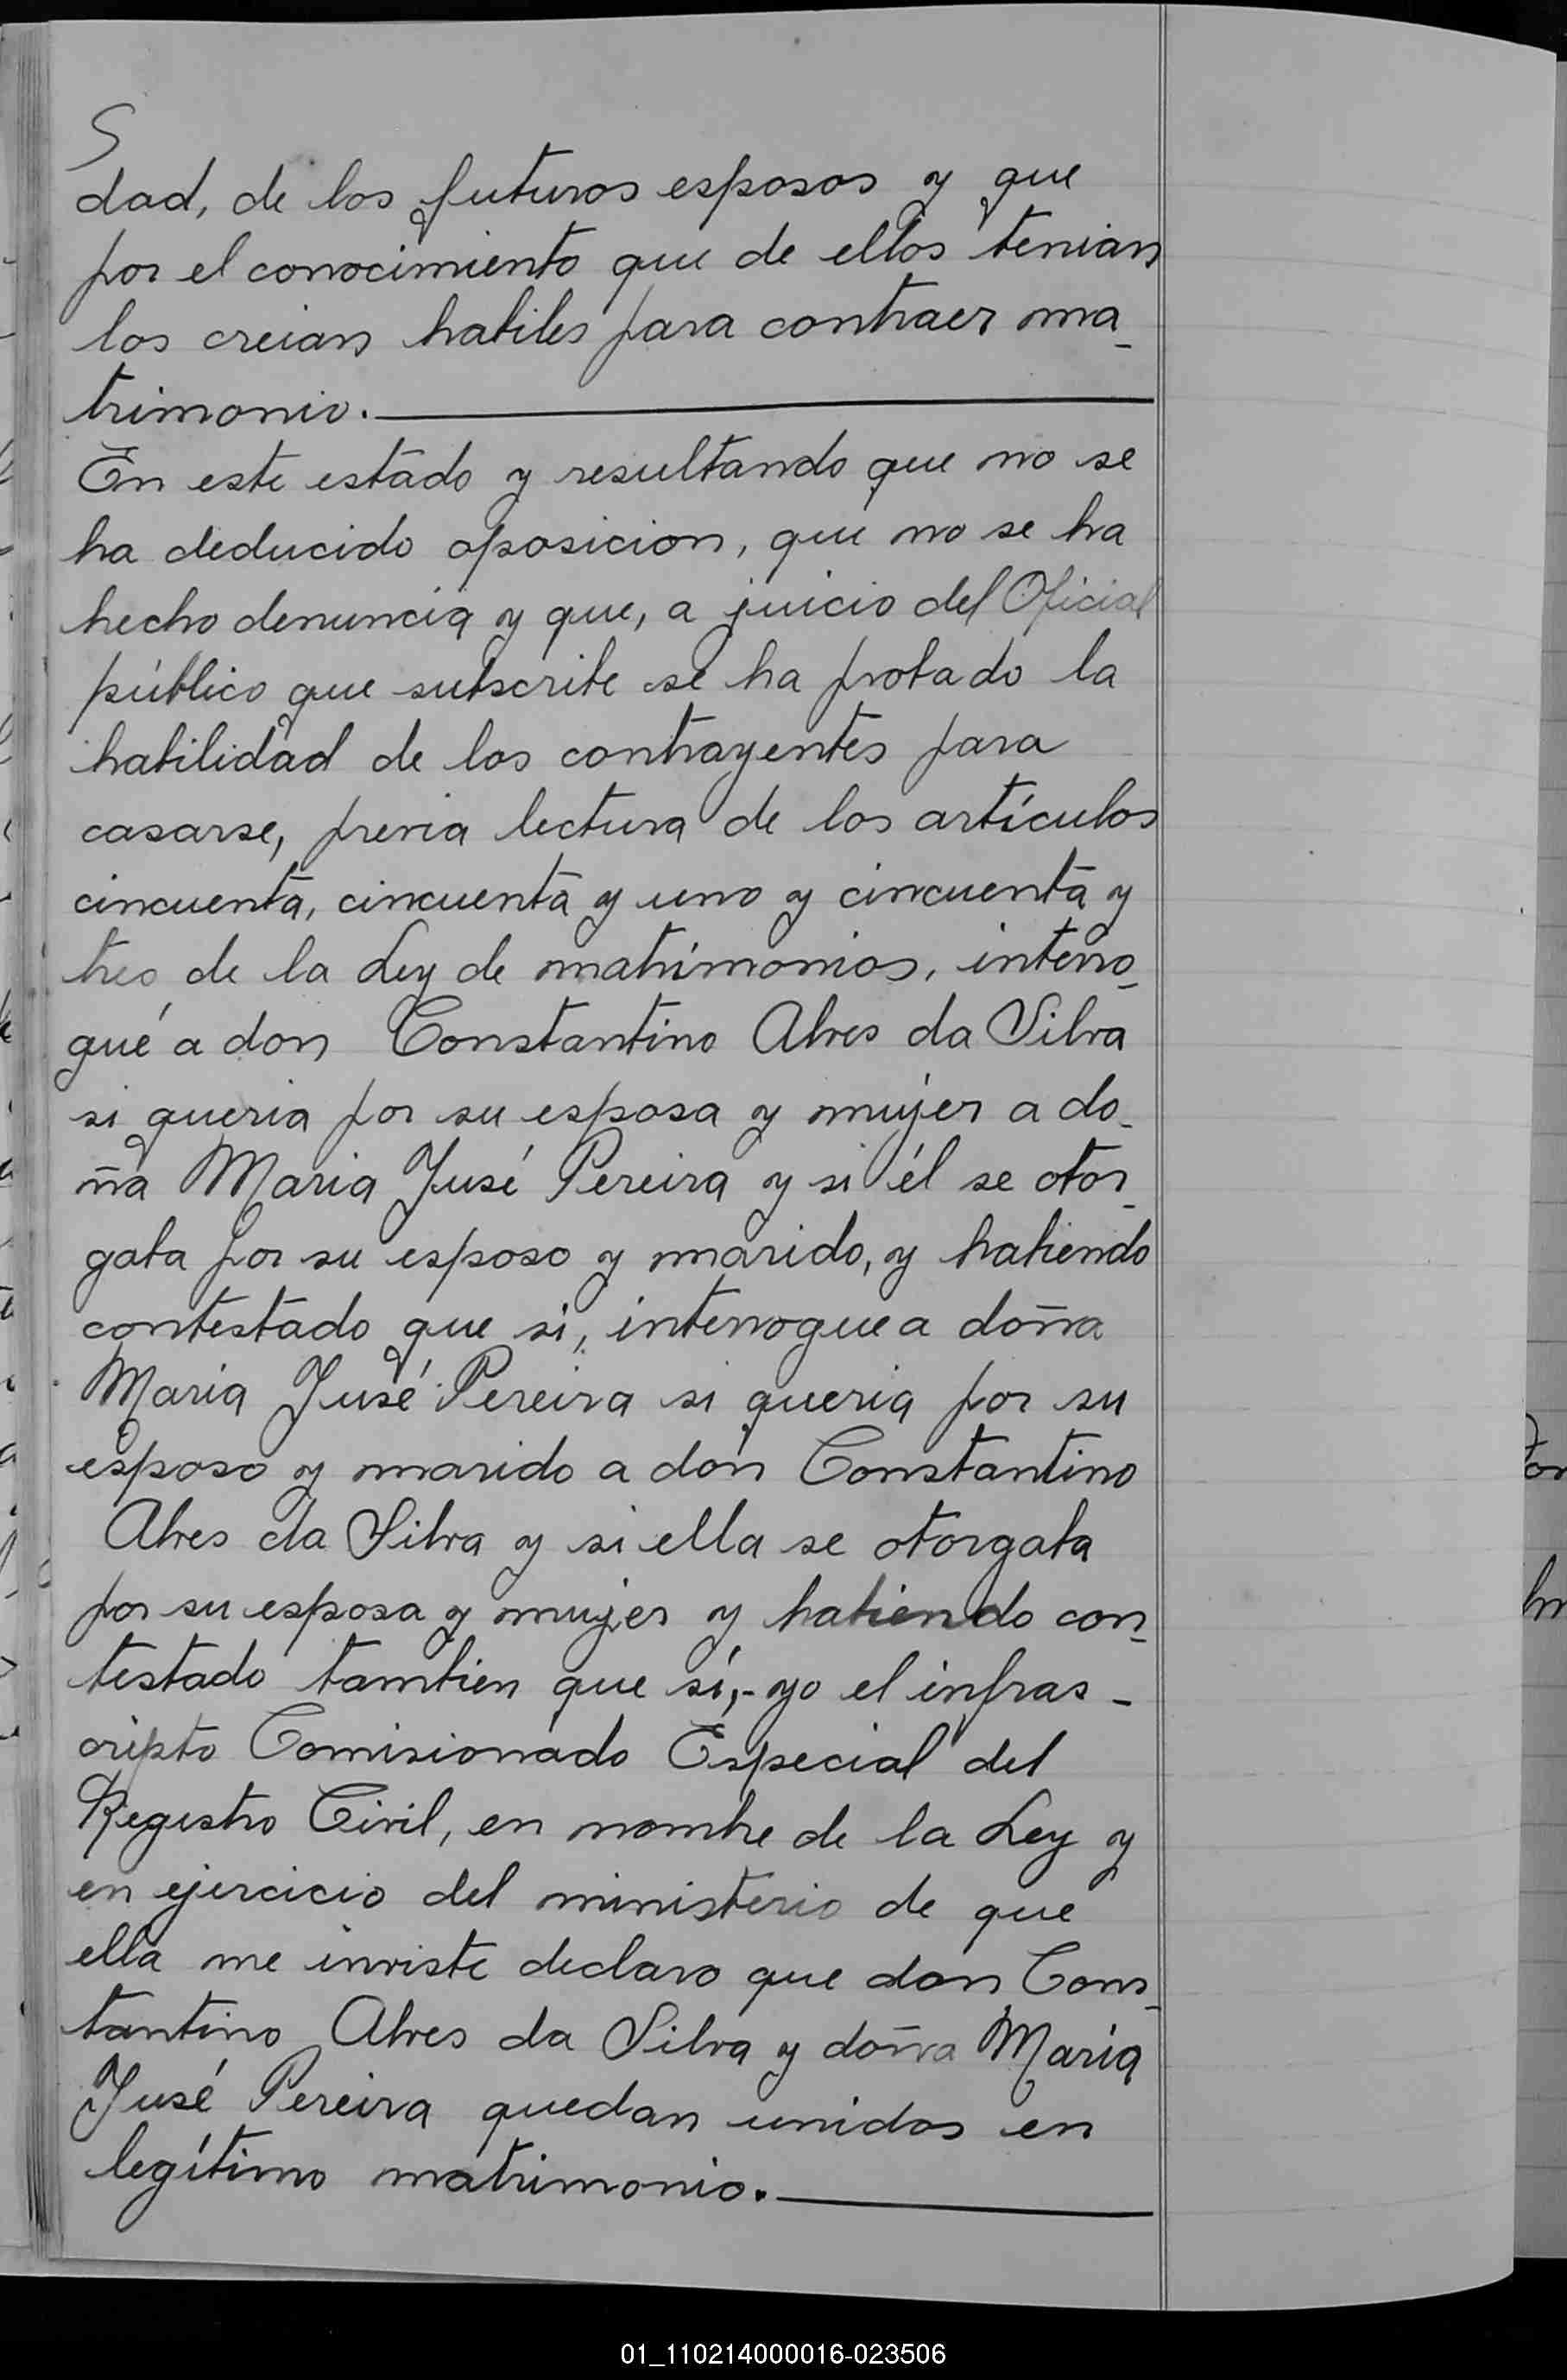 S
dad, de los futuros esposos y que
por el conocimiento que de ellos tenian
los creian habiles para contraer ma_
trimonio.
En este estado y resultando que no se
ha deducido oposicion, que no se ha
hecho denuncia y que, a juicio del Oficial
público que subscribe se ha probado la
habilidad de los contrayentes para
casarse, previa lectura de los artículos
cincuenta, cincuenta y uno y cincuenta y
tres de la Ley de matrimonios, interro_
gué a don Constantino Alves da Silva
si queria por su esposa y mujer a do_
ña Maria Jusé Pereira y si él se otor_
gaba por su esposo y marido, y habiendo
contestado que si, interrogue a doña
Maria Jusé Pereira si queria por su
esposo y marido a don Constantino
Alves da Silva y si ella se otorgaba
por su esposa y mujer y habiendo con_
testado tambien que sí,- yo el infras_
cripto Comisionado Especial del
Registro Civil, en nombre de la Ley y
en ejercicio del ministerio de que
ella me inviste declaro que don Cons_
tantino Alves da Silva y doña Maria
Jusé Pereira quedan unidos en
legítimo matrimonio.
01_110214000016-023506